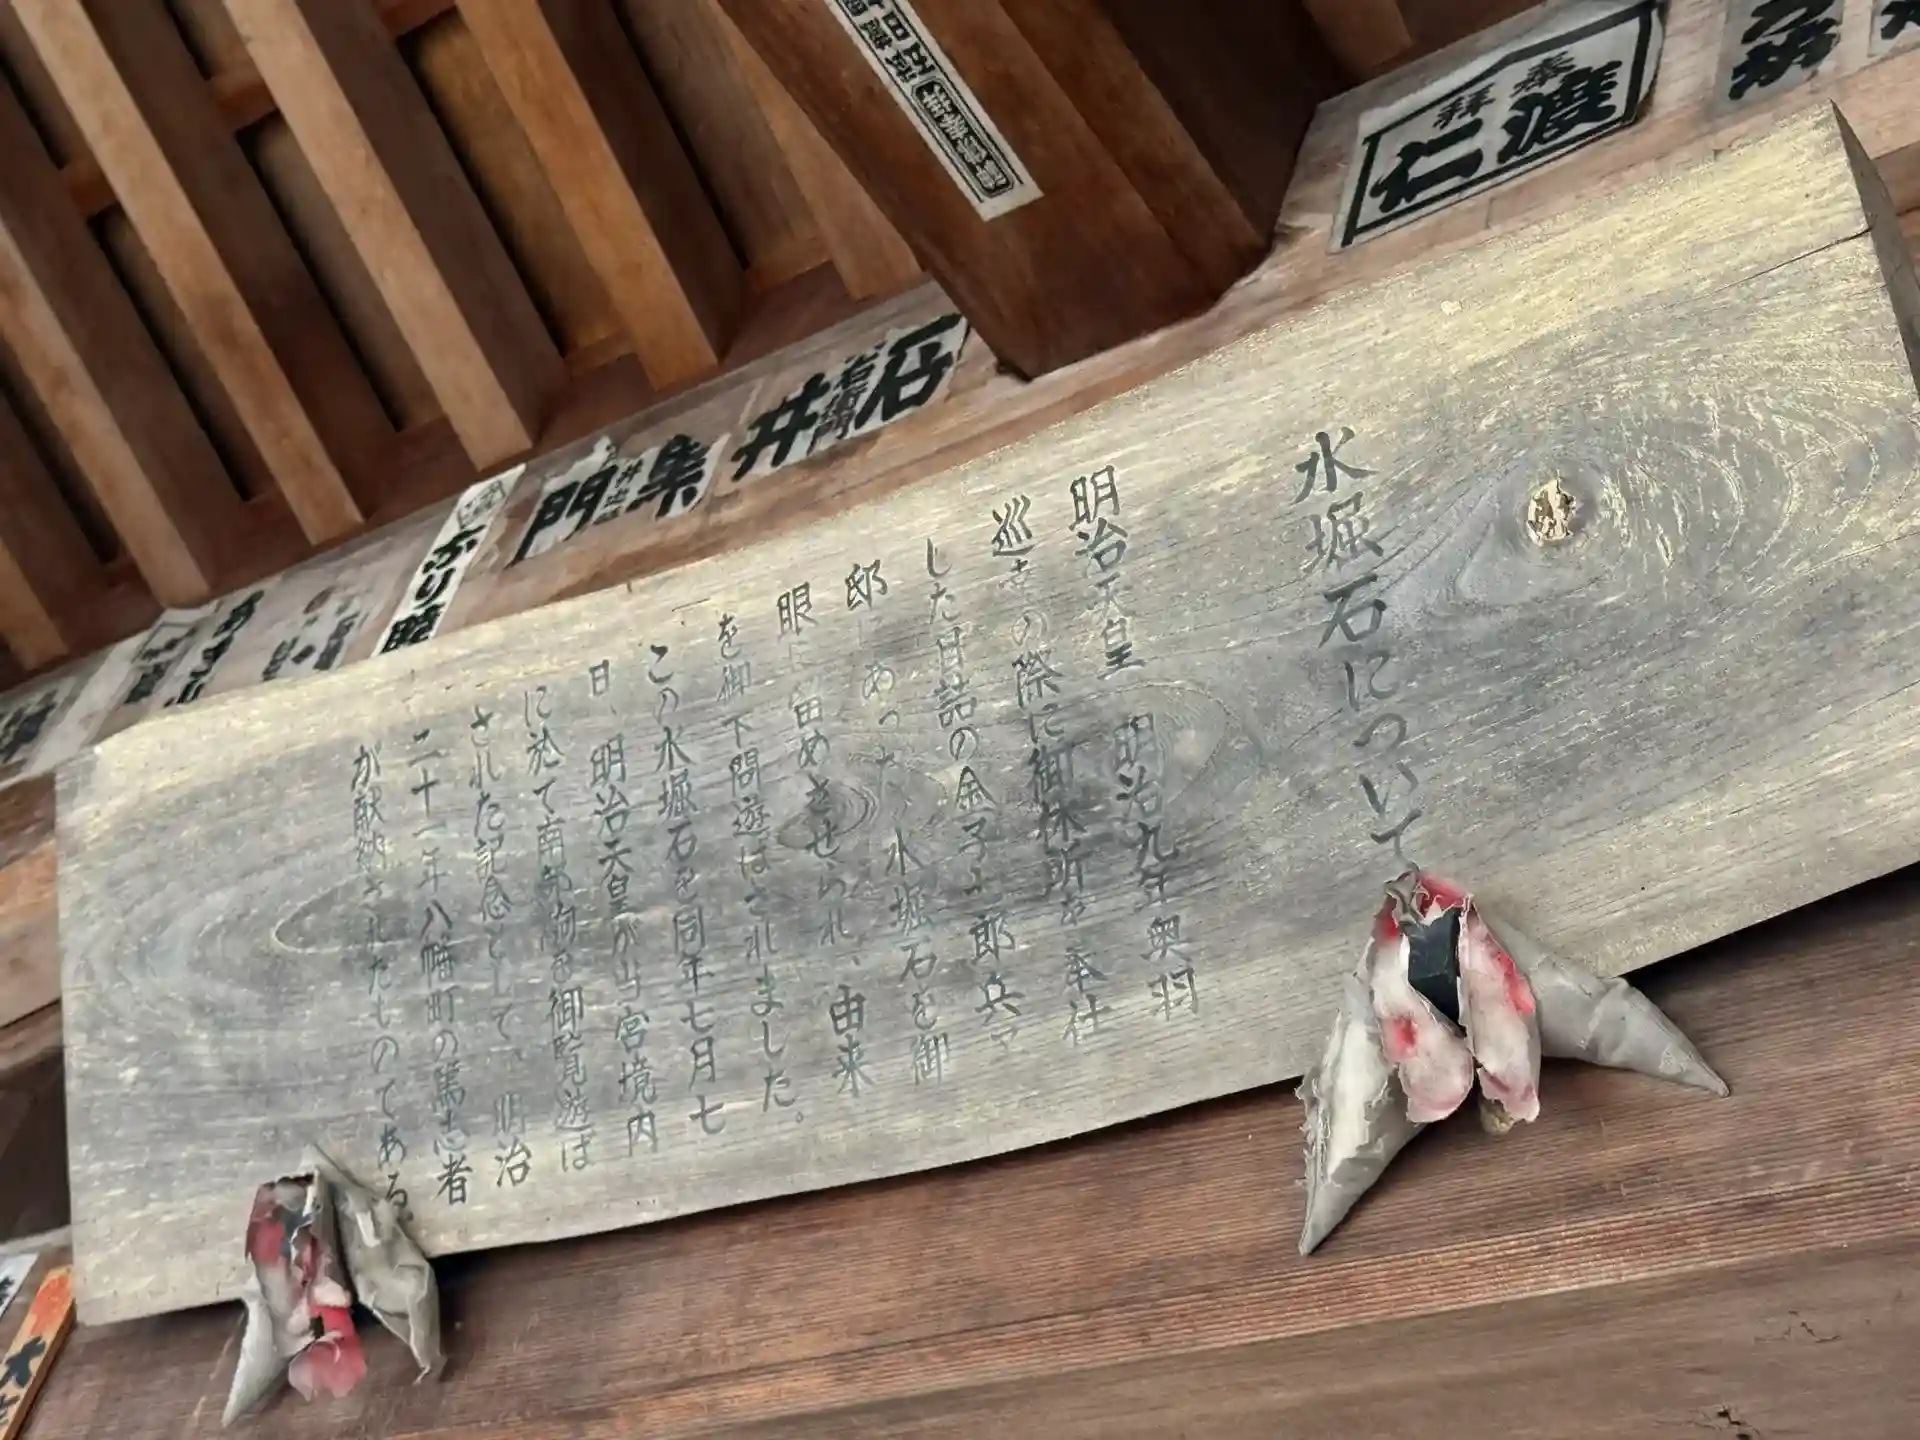 水堀石について
明治天皇 明治九年奥羽
巡幸の際に御休所を奉仕
した日詰の金子七郎兵ヱ
邸にあった、水堀石を御
眼に留めさせられ、由来
を御下問遊ばされました。
この水堀石を同年七月七
日、明治天皇が当宮境内
に於て南部駒を御覧遊ば
された記念として、明治
二十一年八幡町の篤志者
が献納されたものである。
奉拝
渡仁
石井
集門